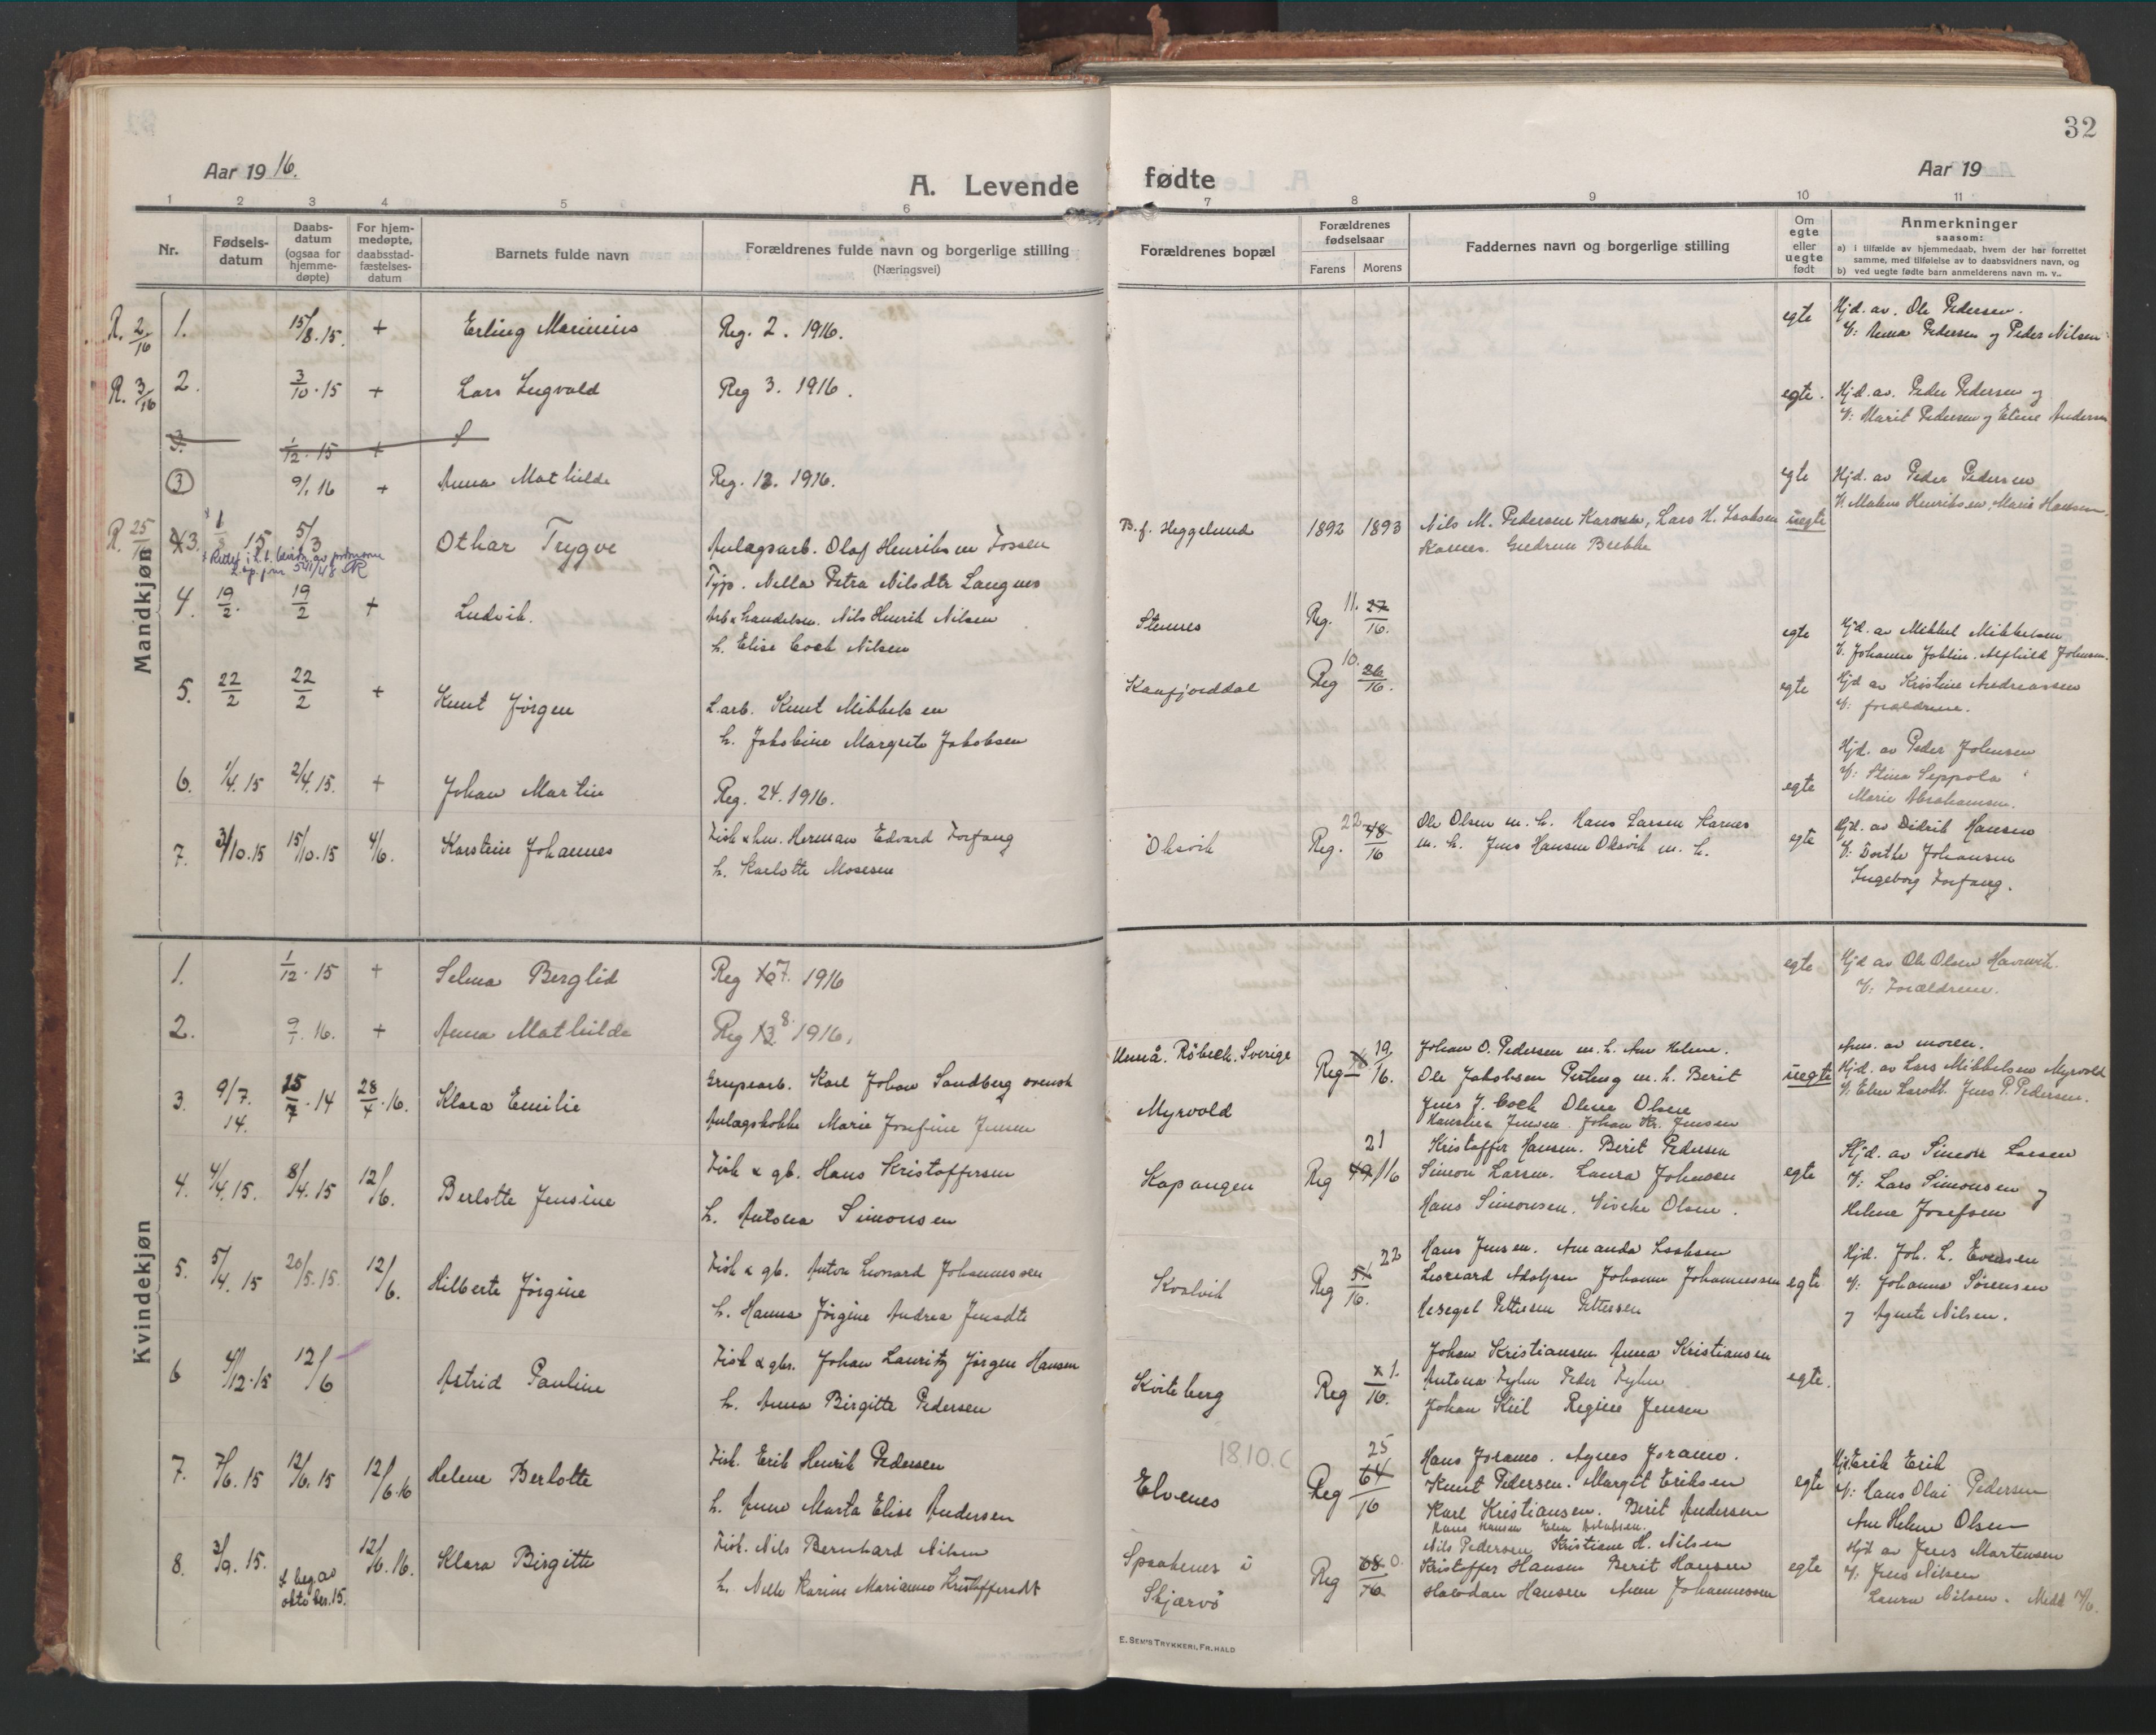 32
Aar 1916.
A. Levende
fødte
Aar 19
1 2 3 4 5 6 7 8 9 10 11
Nr.
Fødsels-
datum
Daabs-
datum
(ogsaa for
hjemme-
døpte)
For hjem-
medøpte,
daabsstad-
fæstelses-
datum
Barnets fulde navn
Forældrenes fulde navn og borgerlige stilling
(Næringsvei)
Forældrenes bopæl
Forældrenes
fødselsaar
Farens Morens
Faddernes navn og borgerlige stilling
Om
egte
eller
uegte
født
Anmerkninger
saasom:
a) i tilfælde av hjemmedaab, hvem der har forrettet
samme, med tilføielse av to daabsvidners navn, og
b) ved uegte fødte barn anmelderens navn m. v..
Mandkjøn
R. 2/16 1. 15/8.15. + Erling Marinius Reg. 2. 1916. egte Hjd. av. Ole Pedersen.
V: Anna Pedersen og Peder Nilsen
R. 3/16 2. 3/10.15 + Lars Ingvald Reg 3. 1916. egte. Hjd. av. Peder Pedersen og
V: Marit Pedersen og Eline Andersen
3. 1/12.15 +
3 9/1 16 + Anna Mathilde Reg. 12. 1916. egte Hjd. av Peder Pedersen
V. Malene Henriksen, Marie Hansen.
R. 25/16 3. 15 5/3 Othar Trygve Anlagsarb. Olaf Henriksen Fossen B. f. Heggelund 1892 1893 Nils M. Pedersen Karnes, Lars H. Isaksen uegte
Karnes. Gudrun Brekke
Tjp. Nella Petra Nilsdtr Langnes
4. 19/2. 19/2 + Ludvik. Nils Henrik Nilsen Stennes Reg. 11. 27/16. egte Hjd. av Mikkel Mikkelsen
L. Elise Cock Nilsen
V. Johanne Alfhild Johnsen.
5. 22/2 22/2 + Knut Jørgen L.arb. Knut Mikkelsen Kaafjorddal Reg 10. 26/16. egte Hjd av Kristine Andreassen
V: forældrene.
h. Jakobine Margrete Jakobsen
6. 1/4.15 2/4.15. + Johan Martin Reg. 24. 1916. egte Hjd. av Peder Johnsen
V: Stina Seppola
Marie Abrahamsen.
7. 3/10.15 15/10.15 4/6. Karstein Johannes Fisk & hm. Herman Edvard Forfang Oksvik Reg. 22 48/16 Ole Olsen m. h. Hans Larsen Karnes egte Hjd. av Didrik Hansen
h. Karlotte Mosesen
m. h. Jens Hansen Oksvik m. h.
V: Dorthe Johansen
Ingeborg Forfang.
Kvindekjøn
1. 1/12.15 + Selma Berglid Reg 7. 1916 egte Hjd av Ole Olsen Havnvik.
V: Forældrene.
2. 9/1.16. + Anna Mathilde Reg 13 8. 1916.
3. 9/7. 14. 15/7.14 28/4.16. Klara Emilie Grupearb. Karl Johan Sandberg svensk
Anlagskokke Marie Josefine Jensen
Umeå. Røbeck. Sverige
Myrvold
Reg 19/16. Johan O. Pedersen m. h. Ane Helene.
Ole Jakobsen m. h. Berit
Jens J. Cock Oline Olsen
Jensen. Johan Kr. Jensen
uegte Anm. av moren.
Hjd. av Lars Mikkelsen Myrvold
V. Elen Larsdt. Jens P. Pedersen.
4. 4/4.15. 8/4.15 12/6. Berlotte Jensine Fisk & gb. Hans Kristoffersen
h. Antona Simonsen
Kopangen Reg 21 49/16 Kristoffer Hansen. Berit Pedersen
Simon Larsen. Laura Johansen
Hans Simonsen. Vivike Olsen.
egte Hjd. av Simon Larsen
V: Lars Simonsen og
Helene Josefsen
5. 5/4.15 20/5.15. 12/6. Hilberte Jørgine Fisk & gb. Anton Leonard Johannessen
h. Hanna Jørgine Andrea Jensdtr
Kvalvik Reg 22 51/16. Hans Jensen. Amanda Isaksen
Leonard Adolfsen Johanne Johannessen
Pettersen Pettersen
egte Hjd. Joh. L. Evensen
V: Johanna Sørensen
og Agnete Nilsen.
6 4/12.15 12/6 Astrid Pauline Fisk & gbr. Johan Lauritz Jørgen Hansen
h. Anna Birgitte Pedersen
Kviteberg Reg 1./16. Johan Kristiansen Anna Kristiansen
Antona Fyhn Peder Fyhn
Johan Kiil Regine Jensen
egte.
7. 7/6.15 12/6.15 12/6.16 Helene Berlotte Fisk. Erik Henrik Pedersen
h. Ane Marta Elise Andersen
1810.C
Elvenes Reg 25 64/16 Hans Joramo. Agnes Joramo.
Knut Pedersen. Margit Eriksen
Karl Kristiansen. Berit Andersen
Hans Hansen Elen
egte Hjd. Erik Erik
V: Hans Olai Pedersen
Ane Helene Olsen
8. 3/9.15. beg. av oktober.15. 12/6.16. Klara Birgitte Fisk. Nils Bernhard Nilsen
h. Nelle Karine Marianne Kristoffersdt
Spaakenes i
Skjærvø
Reg 68/16 Nils Pedersen Kristiane H. Nilsen
Kristoffer Hansen Berit Hansen
Halvdan Hansen Anne Johannessen
egte Hjd av Jens Martensen
V: Jens Nilsen
Laura Nilsen. Medd
E. SEM'S TRYKKERI, FR.HALD